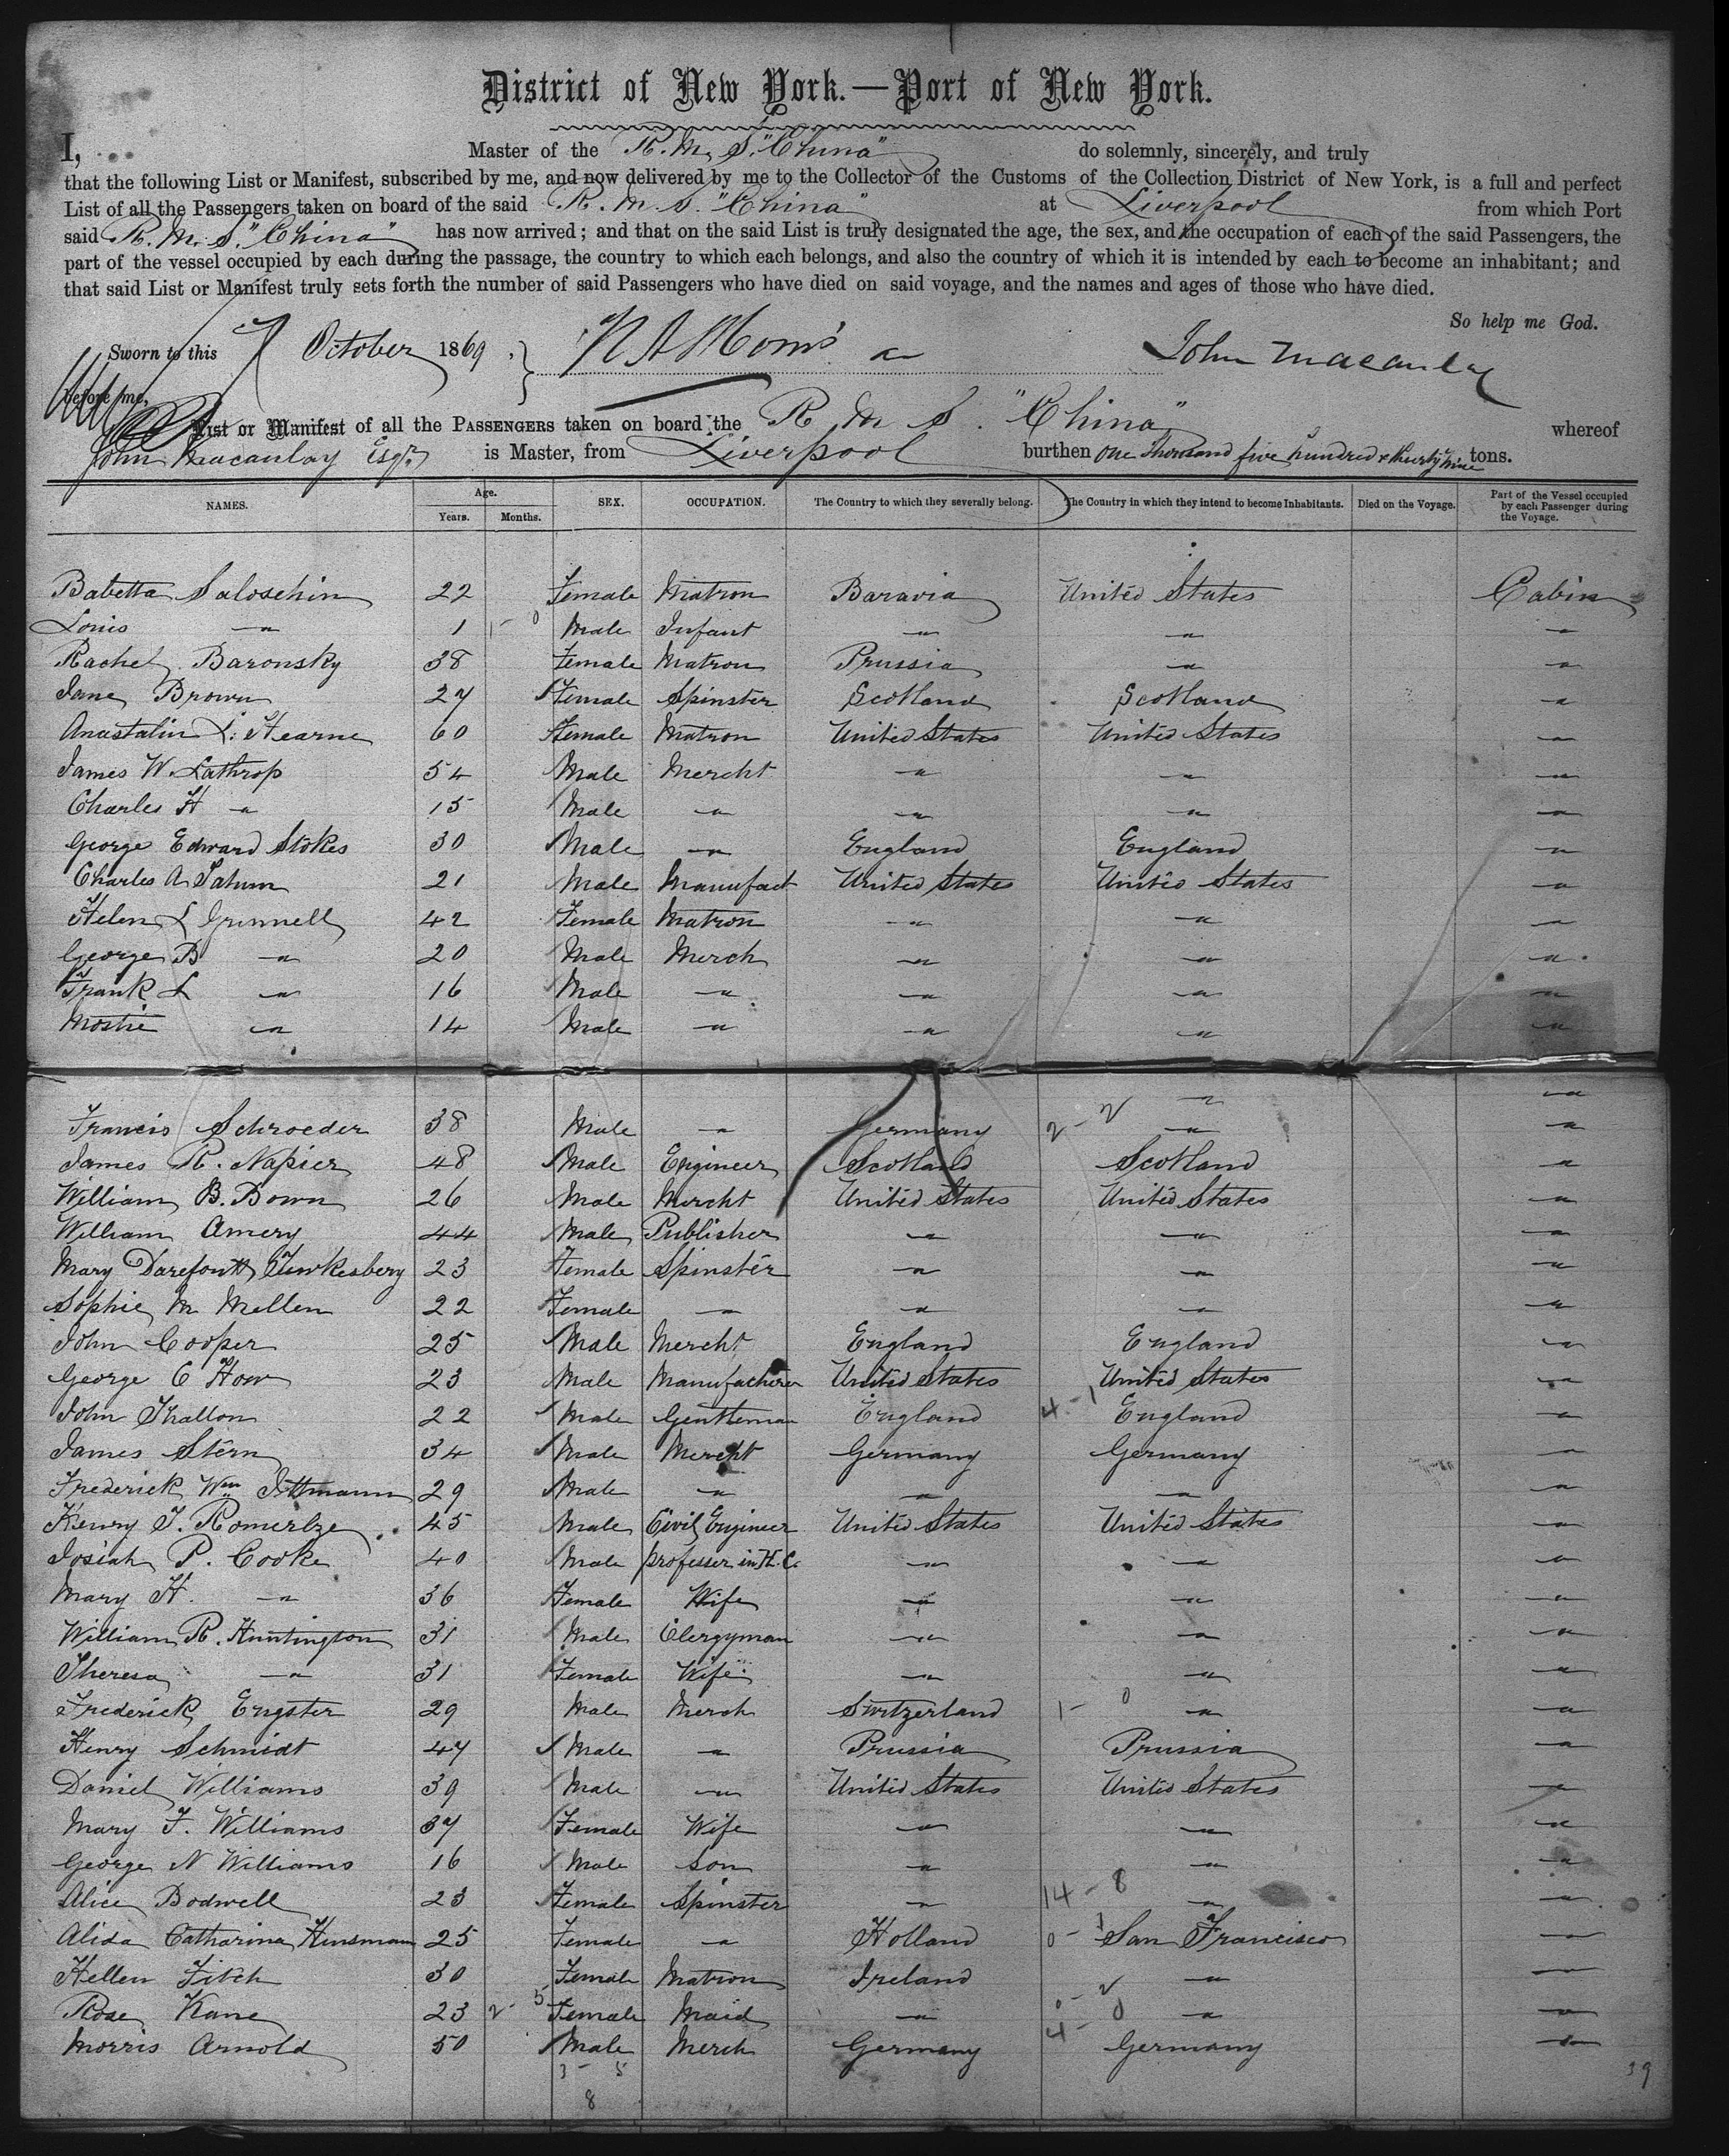 District of New York.—Port of New York.
I, Master of the R. M. S. "China" do solemnly, sincerely, and truly
that the following List or Manifest, subscribed by me, and now delivered by me to the Collector of the Customs of the Collection District of New York, is a full and perfect
List of all the Passengers taken on board of the said R. M. S. "China" at Liverpool from which Port
said R. M. S. "China" has now arrived; and that on the said List is truly designated the age, the sex, and the occupation of each of the said Passengers, the
part of the vessel occupied by each during the passage, the country to which each belongs, and also the country of which it is intended by each to become an inhabitant; and
that said List or Manifest truly sets forth the number of said Passengers who have died on said voyage, and the names and ages of those who have died.
So help me God.
Sworn to this 7 October 1869 John Macaulay
before me,
List or Manifest of all the PASSENGERS taken on board the R M S. "China" whereof
John Macaulay Esqr. is Master, from Liverpool burthen One thousand five hundred & thirty nine tons.
NAMES. Age. Years. Months. SEX. OCCUPATION. The Country to which they severally belong. The Country in which they intend to become Inhabitants. Died on the Voyage. Part of the Vessel occupied by each Passenger during the Voyage.
Babetta Saloschin 22 Female Matron Baravia United States Cabin
Louis " 1 1 - 0 Male Infant " " "
Rachel Baronsky 38 Female Matron Prussia " "
Jane Brown 27 Female Spinster Scotland Scotland "
L. Hearne 60 Female Matron United States United States "
James W. Lathrop 54 Male Mercht " " "
Charles H " 15 Male " " " "
George Edward Stokes 30 Male " England England "
Charles A Tatum 21 Male Manufact United States United States "
Helen L Grinnell 42 Female Matron " " "
George B " 20 Male Merch " " "
Frank L " 16 Male " " " "
" 14 Male " " " "
" "
Francis Schroeder 38 Male " Germany 2 - 2 " "
James R. Napier 48 Male Engineer Scotland Scotland "
William B. Bown 26 Male Mercht United States United States "
William Amery 44 Male Publisher " " "
Mary 23 Female Spinster " " "
Sophie M Mellen 22 Female " " " "
John Cooper 25 Male Mercht England England "
George C How 23 Male Manufacturer United States United States "
John Thallon 22 Male Gentleman England 4 - 1 England "
James Stern 34 Male Mercht Germany Germany "
Frederick Wm Ittmann 29 Male " " " "
Henry T. 45 Male Civil Engineer United States United States "
Josiah P. Cooke 40 Male professor in H. C. " " "
Mary H. " 36 Female Wife " " "
William R. Huntington 31 Male Clergyman " " "
Theresa " 31 Female Wife " " "
Frederick Engster 29 Male Merch Switzerland 1 - 0 " "
Henry Schmidt 47 Male " Prussia Prussia "
Daniel Williams 39 Male " United States United States "
Mary F. Williams 37 Female Wife " " "
George N Williams 16 Male Son " " "
Alice Bodwell 23 Female Spinster " 14 - 8 " "
Alida Catharina Hinsman 25 Female " Holland 0 - 1 San Francisco "
Hellen Fitch 30 Female Matron Ireland " "
Rose Kane 23 2 - 5 Female Maid " 0 - 2 " "
Morris Arnold 50 Male Merch Germany 4 - 0 Germany "
3 - 5
8
39